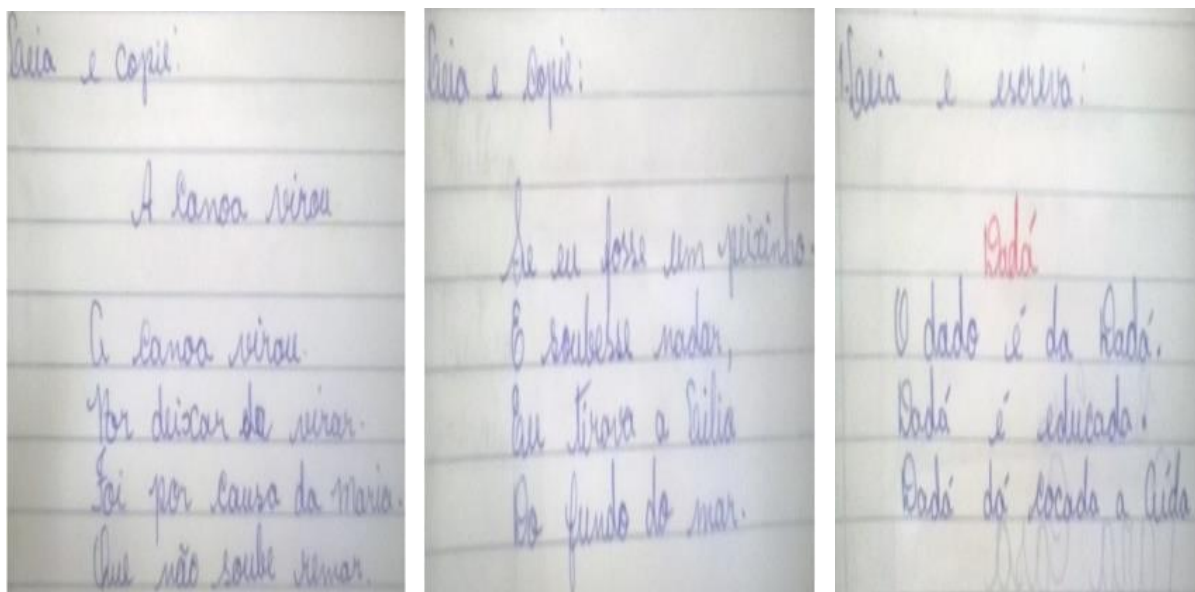 Leia e copie:
A canoa virou
A canoa virou.
Por deixar de virar.
Foi por causa da Maria.
Que não soube remar.
Leia e copie:
Se eu fosse um peixinho.
E soubesse nadar,
Eu tirava a
Do fundo do mar.
Leia e escreva:
Dadá
O dado é da Dadá.
Dadá é educada.
Dadá dá cocada a Aída